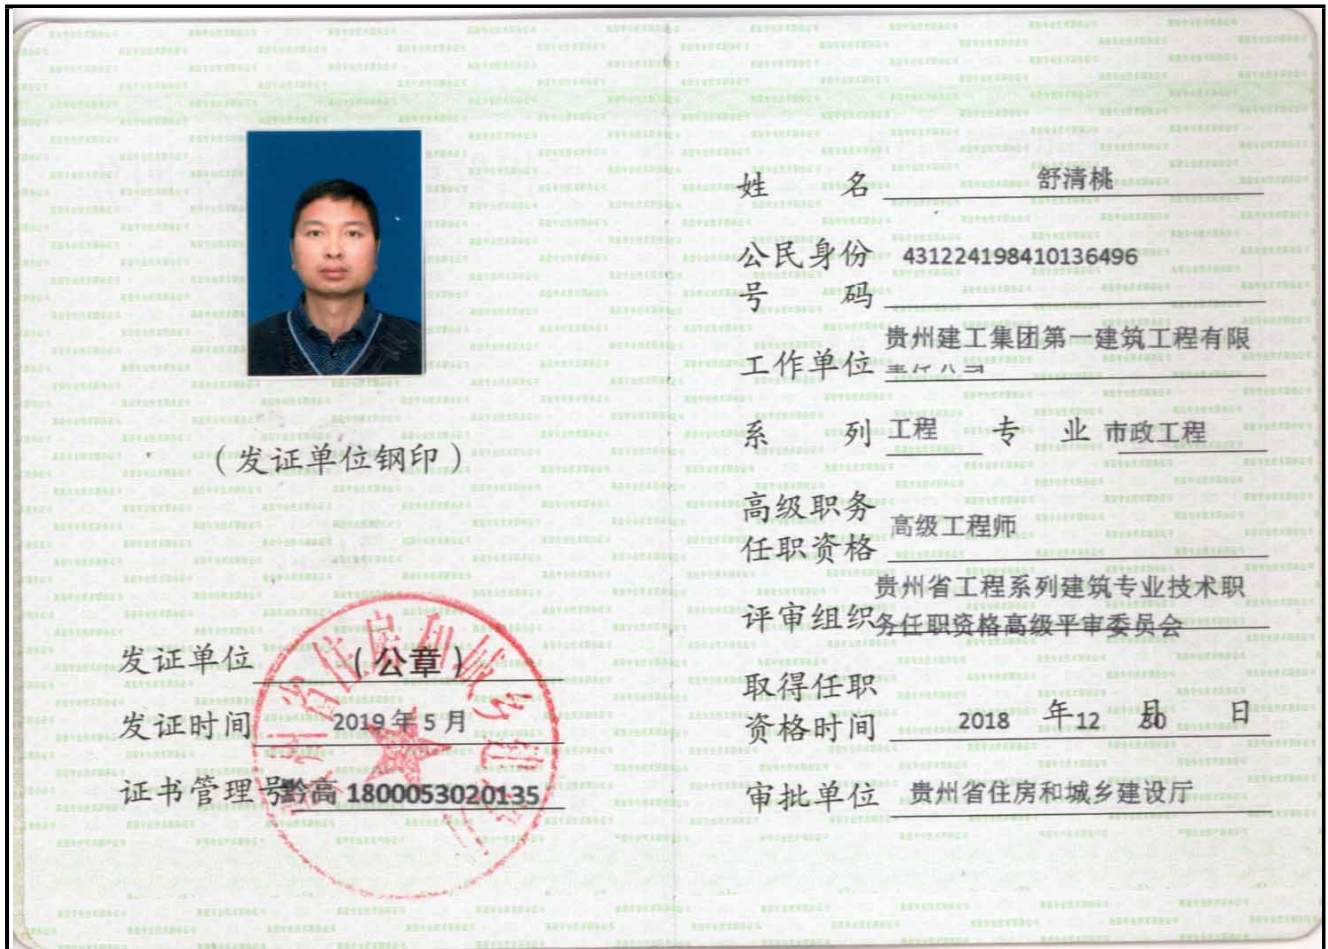 (发证单位钢印)
发证单位 (公章)
发证时间 2019年5月
证书管理号黔高 1800053020135
姓 名 舒清桃
公民身份 431224198410136496
号 码
贵州建工集团第一建筑工程有限
工作单位 责任公司
系 列 工程 专 业 市政工程
高级职务
任职资格 高级工程师
贵州省工程系列建筑专业技术职
评审组织 务任职资格高级评审委员会
取得任职
资格时间 2018 年 12 月 30 日
审批单位 贵州省住房和城乡建设厅